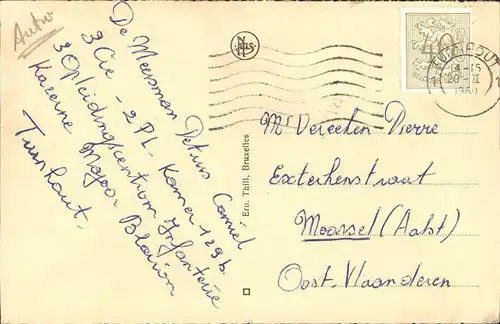 Antw
De Meersman Petrus Camiel
3 Cie - 2 Pl. Kamer 129 b.
3 Opleidingscentrum Infanterie
Kazerne Majoor Blairon
Turnhout.
Nels
Ern. Thill, Bruxelles
40
TURNHOUT
14-15
20-II
1960
Mr Vereecken Pierre
Exterkenstraat
Moorsel (Aalst)
Oost-Vlaanderen